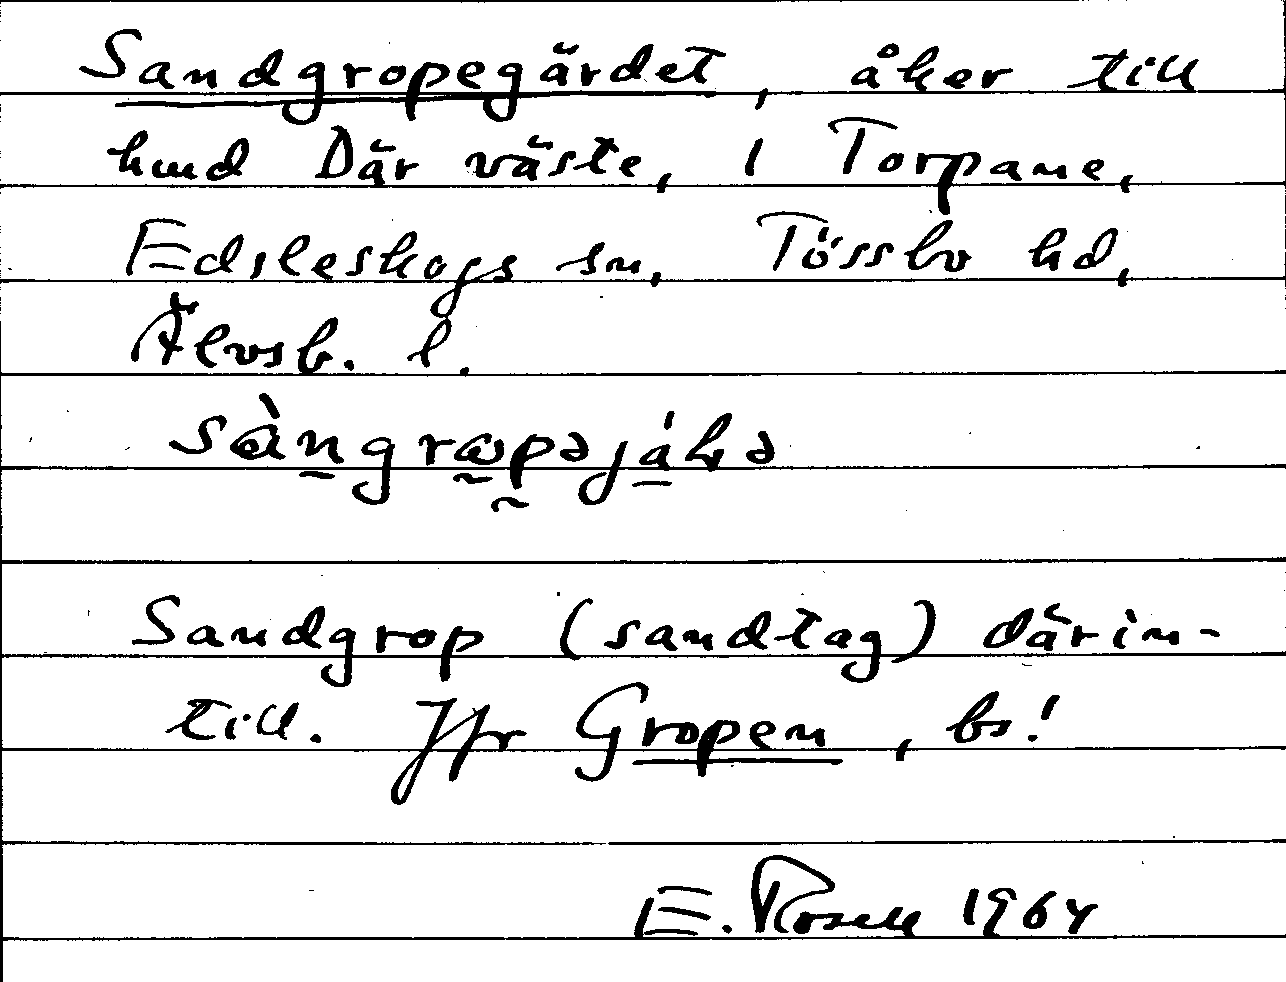 Sandgropegärdet, åker till
hmd Där väste, i Torpane,
Edsleskogs sn, Tössbo hd,
Älvsb. l.
Sandgrop (sandtag) därin-
till. Jfr Gropen, bs!
E. Rosell 1964